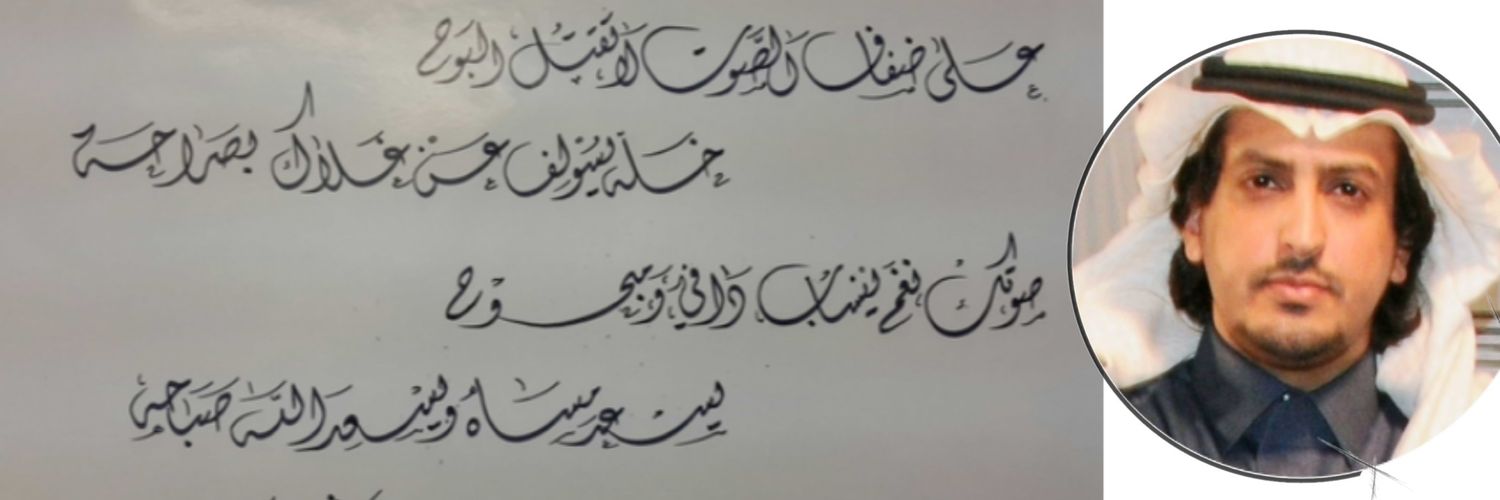 على ضفاف الصوت لا تقتل البوح
خله يسولف عن غلاك بصراحة
صوتك نغم ينساب دافي ومبحوح
يسعد مساه ويسعد الله صباحه